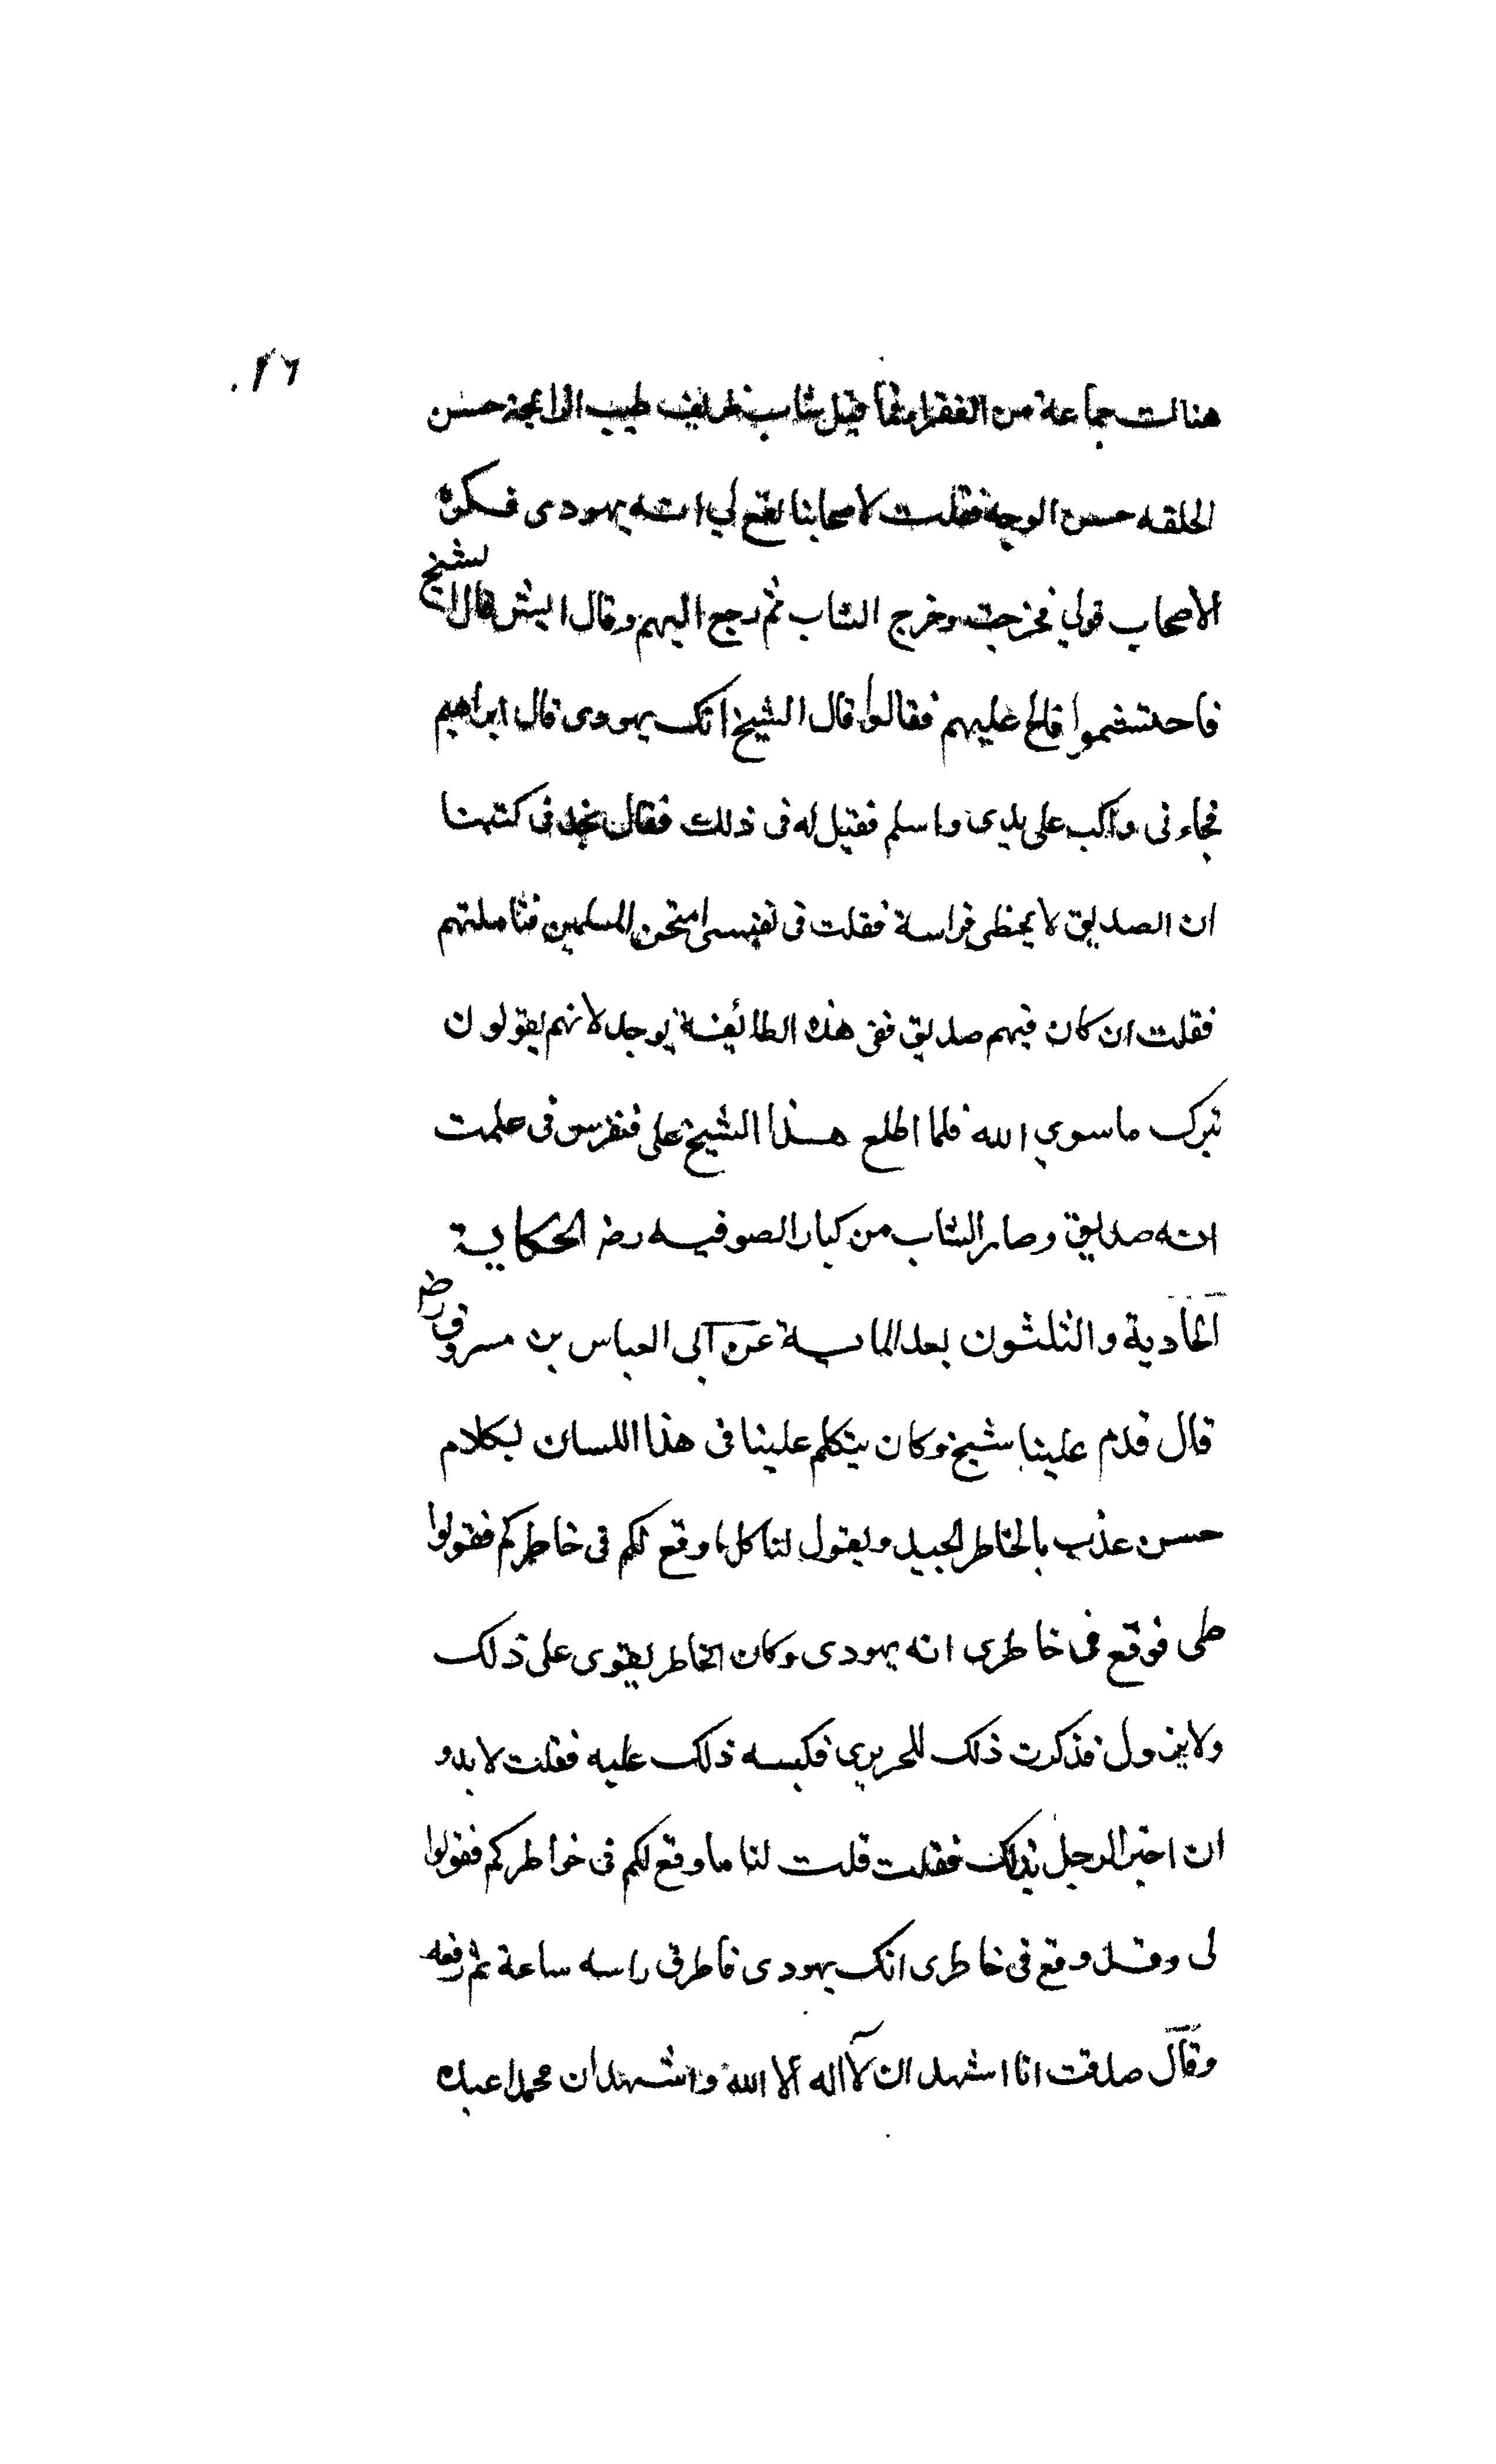 ٢٦
هنالك جماعة من الفقراء فاقبل شاب ظريف طيب الرايحة حسن
الخلقه حسن الوجه فقلت لاصحابنا يقع لي انه يهودى فكره
الاصحاب قولي فخرجت وخرج الشاب ثم رجع اليهم وقال ايش قال الشيخ
فاحتشموا فالح عليهم فقالوا قال الشيخ انك يهودى قال ابراهيم
فجاءنى واكب على يدى واسلم فقيل له فى ذلك فقال نجد فى كتبنا
ان الصديق لا يخطى فراسة فقلت فى نفسى امتحن المسلمين فتاملتهم
فقلت ان كان فيهم صديق ففى هذه الطائفة يوجد لانهم يقولون
بترك ما سوي الله فلما اطلع هذا الشيخ على فتفرس فى علمت
انه صديق وصار الشاب من كبار الصوفيه رضـ الحكاية
الحادية والثلثون بعد الماية عن ابى العباس بن مسروق رضـ
قال قدم علينا شيخ وكان يتكلم علينا فى هذا اللسان بكلام
حسن عذب بالخاطر الجيد ويقول لنا كل ما وقع لكم فى خاطركم فقولوا
لى فوقع فى خاطرى انه يهودى وكان الخاطر يقوى على ذلك
ولا يزول فذكرت ذلك للحريرى فكبسه ذلك عليه فقلت لا بد و
ان اخبر الرجل بذلك فقلت قلت لنا ما وقع لكم فى خواطركم فقولوا
لى وقد وقع فى خاطرى انك يهودى فاطرق راسه ساعة ثم رفعه
وقال صدقت انا اشهد ان لا اله الا الله واشهد ان محمدا عبده